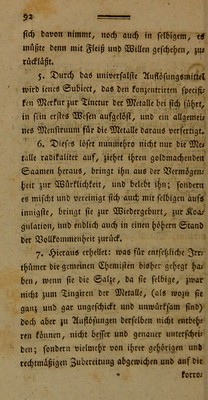 92
sich davon nimmt, noch auch in selbigem, es
müßte denn mit Fleiß und Willen geschehen, zu-
rückläßt.
5. Durch das universalste Auflösungsmittel
wird jenes Subject, das den konzentrirten specifi-
ken Merkur zur Tinctur der Metalle bei sich führt,
in sein erstes Wesen aufgelöst, und ein allgemei-
nes Menstruum für die Metalle daraus verfertigt.
6. Dieses löset nunmehro nicht nur die Me-
talle radikaliter auf, ziehet ihren goldmachenden
Saamen heraus, bringt ihn aus der Vermögen-
heit zur Würklichkeit, und belebt ihn; sondern
es mischt und vereinigt sich auch mit selbigen aufs
innigste, bringt sie zur Wiedergeburt, zur Koa-
gulation, und endlich auch in einen höhern Stand
der Vollkommenheit zurück.
7. Hieraus erhellet: was für entsetzliche Irr-
thümer die gemeinen Chemisten bisher gehegt ha-
ben, wenn sie die Salze, da sie selbige, zwar
nicht zum Tingiren der Metalle, (als wozu sie
ganz und gar ungeschickt und unwürksam sind)
doch aber zu Auflösungen derselben nicht entbeh-
ren können, nicht besser und genauer unterschei-
den; sondern vielmehr von ihrer gehörigen und
rechtmäßigen Zubereitung abgewichen und auf die
korro-